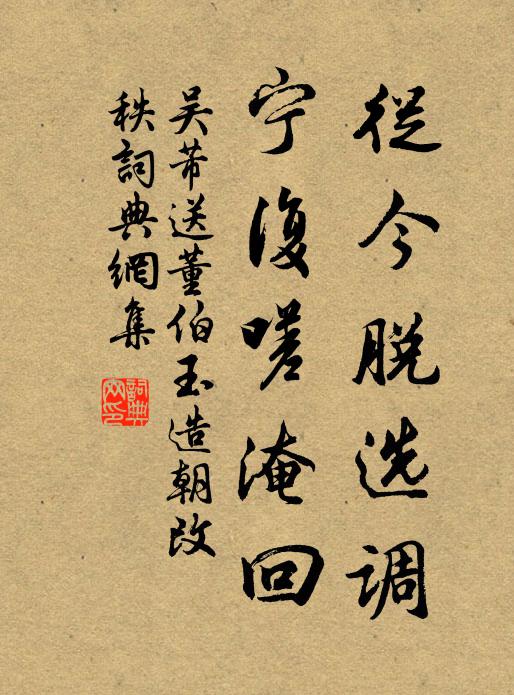 從今脱选调
宁復嗟淹回
吴芾送董伯玉造朝改
秩詞典網集
詞典